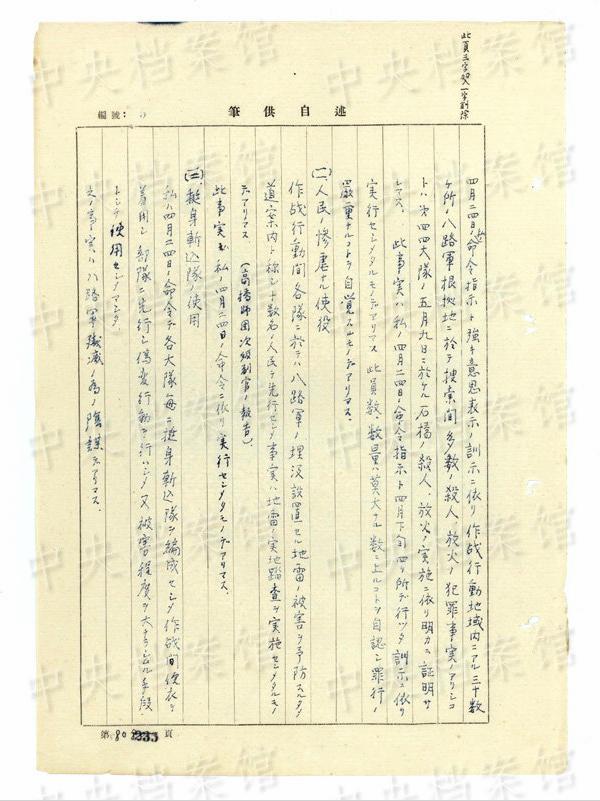 此頁三字加入一字削除
編號：5
筆供自述
四月二四日命令指示ト強キ意思表示ノ訓示ニ依リ作战行動地域内ニアル三十数
ケ所ノ八路軍根拠地ニ於テ捜索間多数ノ殺人、放火ノ犯罪事実ノアリシコ
トハ第四四大隊ノ五月九日ニ於ケル石橋ノ殺人、放火ノ実施ニ依リ明カニ証明サ
レマス。此事実ハ私ノ四月二四日ノ命令指示ト四月下旬四ケ所デ行ツタ訓示ニ依リ
実行セシメタルモノデアリマス 此員数、数量ハ莫大ナル数ニ上ルコトヲ自認シ罪行ノ
嚴重ナルコトヲ自覚スルモノデアリマス。
(一)、人民ノ惨虐ナル使役
作战行動間各隊ニ於テハ八路軍ノ埋没設置セル地雷ノ被害ヲ予防スルタメ
道案内ト称シ十数名ノ人民ヲ先行セシメ事実ハ地雷ノ実地踏査ヲ実施セシメタルモノ
デアリマス (高橋師団次級副官ノ報告)
此事実モ私ノ四月二四日ノ命令ニ依リ実行セシメタモノデアリマス。
(二)、挺身斬込隊ノ使用
私ハ四月二四日ノ命令デ各大隊毎ニ挺身斬込隊ヲ編成セシメ作战間便衣ヲ
着用シ部隊ニ先行シ偽変行動ヲ行ハシメ又被害程度ヲ大ナラシムル手段
トシテ使用セシメマシタ
之ノ事実ハ八路軍殲滅ノ為ノ陰謀デアリマス。
第 80 235 頁
中央档案馆